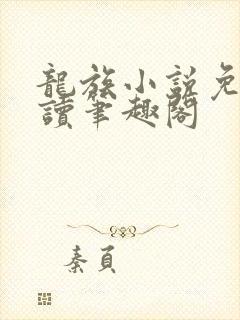 龍族小說免
讀筆趣閣
秦頁